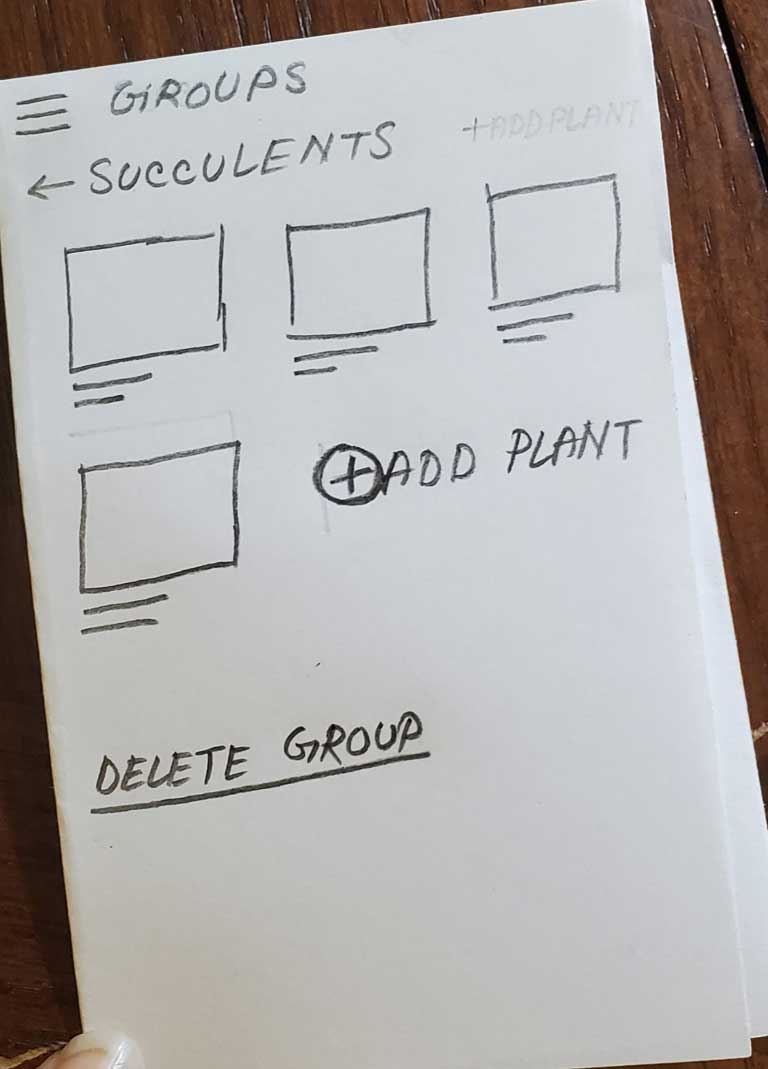 GROUPS
← SUCCULENTS +ADD PLANT
+ ADD PLANT
DELETE GROUP